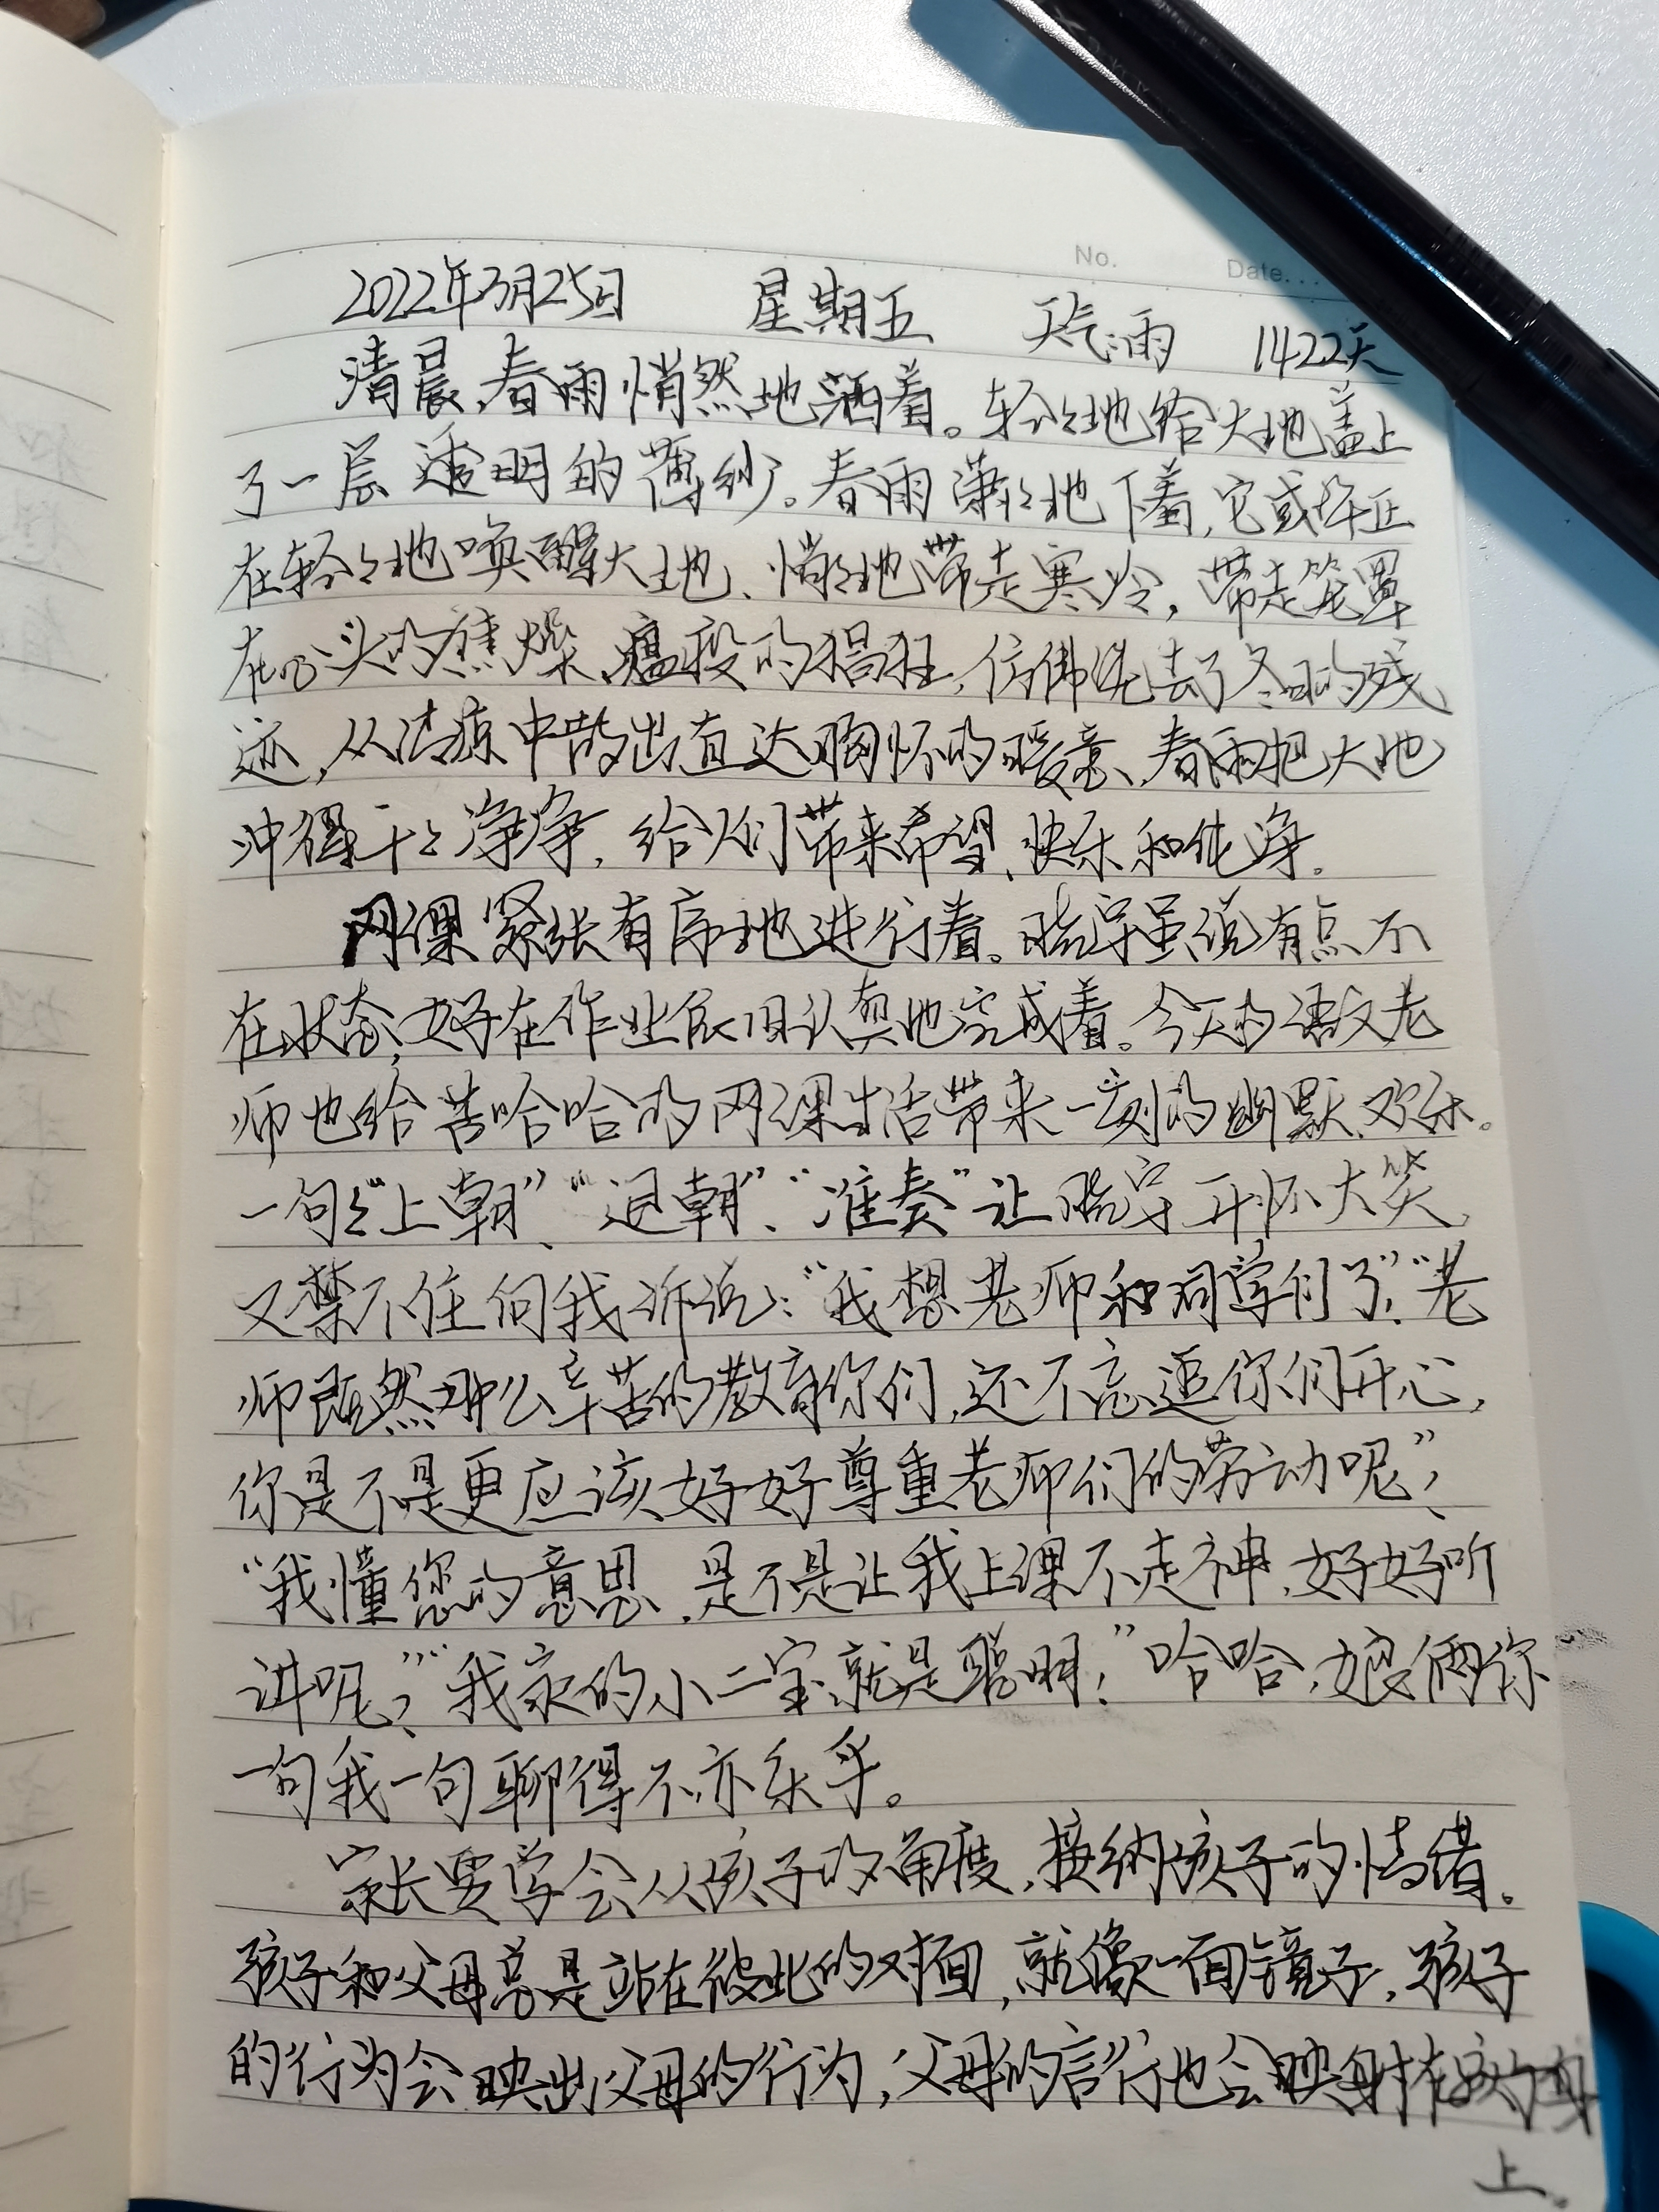 No.
Date...
2022年3月25日 星期五 天气:雨 1422天
清晨,春雨悄然地洒着。轻轻地给大地盖上
了一层透明的薄纱。春雨潇潇地下着,它或许正
在轻轻地唤醒大地、悄悄地带走寒冷,带走笼罩
在心头的焦燥、瘟疫的猖狂,仿佛洗去了冬日的残
迹,从清凉中散出直达胸怀的暖意、春雨把大地
冲得干干净净,给人们带来希望、快乐和纯净。
网课紧张有序地进行着。晓宇虽说有点不
在状态,好在作业依旧认真地完成着。今天的语文老
师也给苦哈哈的网课生活带来一刻的幽默、欢乐。
一句句“上朝”、“退朝”、“准奏”让晓宇开怀大笑,
又禁不住向我诉说:“我想老师和同学们了!”“老
师既然那么辛苦的教育你们,还不忘逗你们开心,
你是不是更应该好好尊重老师们的劳动呢?”
“我懂您的意思,是不是让我上课不走神,好好听
讲呢?”“我家的小二宝就是聪明!”哈哈,娘俩你
一句我一句聊得不亦乐乎。
家长要学会从孩子的角度,接纳孩子的情绪。
孩子和父母总是站在彼此的对面,就像一面镜子,孩子
的行为会映出父母的行为,父母的言行也会映射在孩子的身
上。